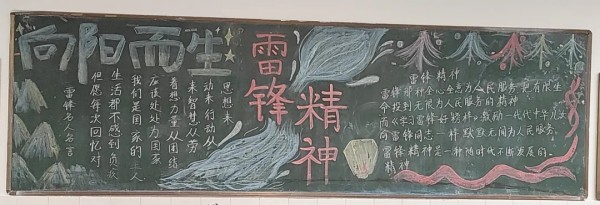 向阳而生
雷锋
精神
思想来
动来行动从
来智慧从劳
善想力量从团结
应该处处为国家
我们是国家的主人
生活都不感到负疚
但愿每次回忆对
雷锋名人名言
雷锋精神
雷锋那种全心全意为人民服务把有限生
命投到无限为人民服务的精神
而以学习雷锋好榜样。激励一代代中华儿女
向雷锋同志一样默默无闻为人民服务。
雷锋精神是一种随时代不断发展的
精神